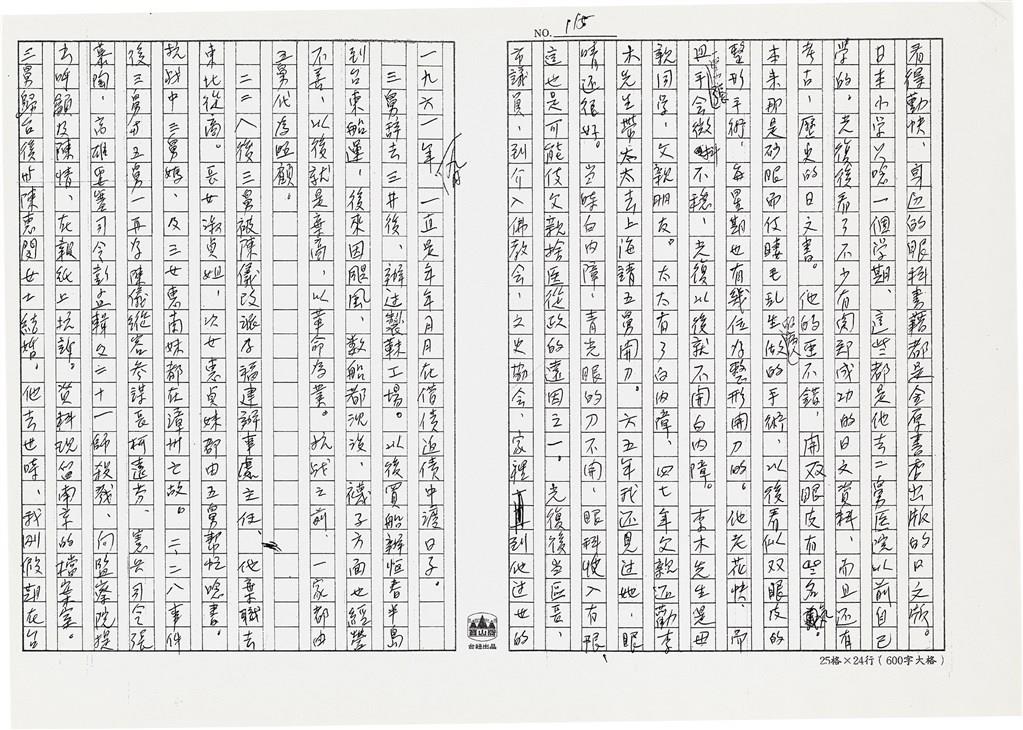 NO. 115
看得勤快，身边的眼科書籍都是金原書店出版的日文版。
日本小学只唸一個学期，這些都是他去二舅医院以前自己
学的。光復後看了不少有関郑成功的日文資料，而且还有
考古，歷史的日文書。他的医不錯，開双眼皮有些名氣。
本来那是砂眼而使睫毛乱生的病人做的手術，以後看似双眼皮的
整形手術，每星期也有幾位为整形開刀的。他老花快，而
且手会微抖不穩，光復以後就不開白内障。李木先生是母
親同学，父親朋友。太太有了白内障，四七年父親还勸李
木先生帶太太去上海請五舅開刀。六五年我还見过她，眼
睛还很好。当時白内障，青光眼的刀不開，眼科收入有限，
這也是可能使父親捨医從政的遠因之一。光復後当區長，
市議員，到介入佛教会，文史协会，家裡直到他过世的
一九六一年（九月），一直是年年月月在借债迫债中渡日子。
三舅辞去三井後，辦过製麻工場。以後買船辦恒春半島
到台東船運，後來因颱風，數船都沈没，襪子方面也經營
不善，以後就是棄商，以革命为業。抗战之前，一家都由
五舅代为照顧。
二二八後三舅被陳儀改派为福建辦事處主任，他棄職去
東北從商。長女淑貞姐，次女惠貞妹都由五舅幫忙唸書。
抗战中三舅媽，及三女惠南妹都在漳州亡故。二二八事件
後三舅与五舅一再为陳儀縱容参謀長柯遠芬，憲兵司令張
慕陶，高雄要塞司令彭孟輯之二十一師殺戮，向監察院提
去呼籲及陳情，在報紙上抗訴。資料現留南京的檔案室。
三舅歸台後与陳惠閔女士結婚。他去世時，我刚做期在台
台社出品
25格×24行(600字大格)